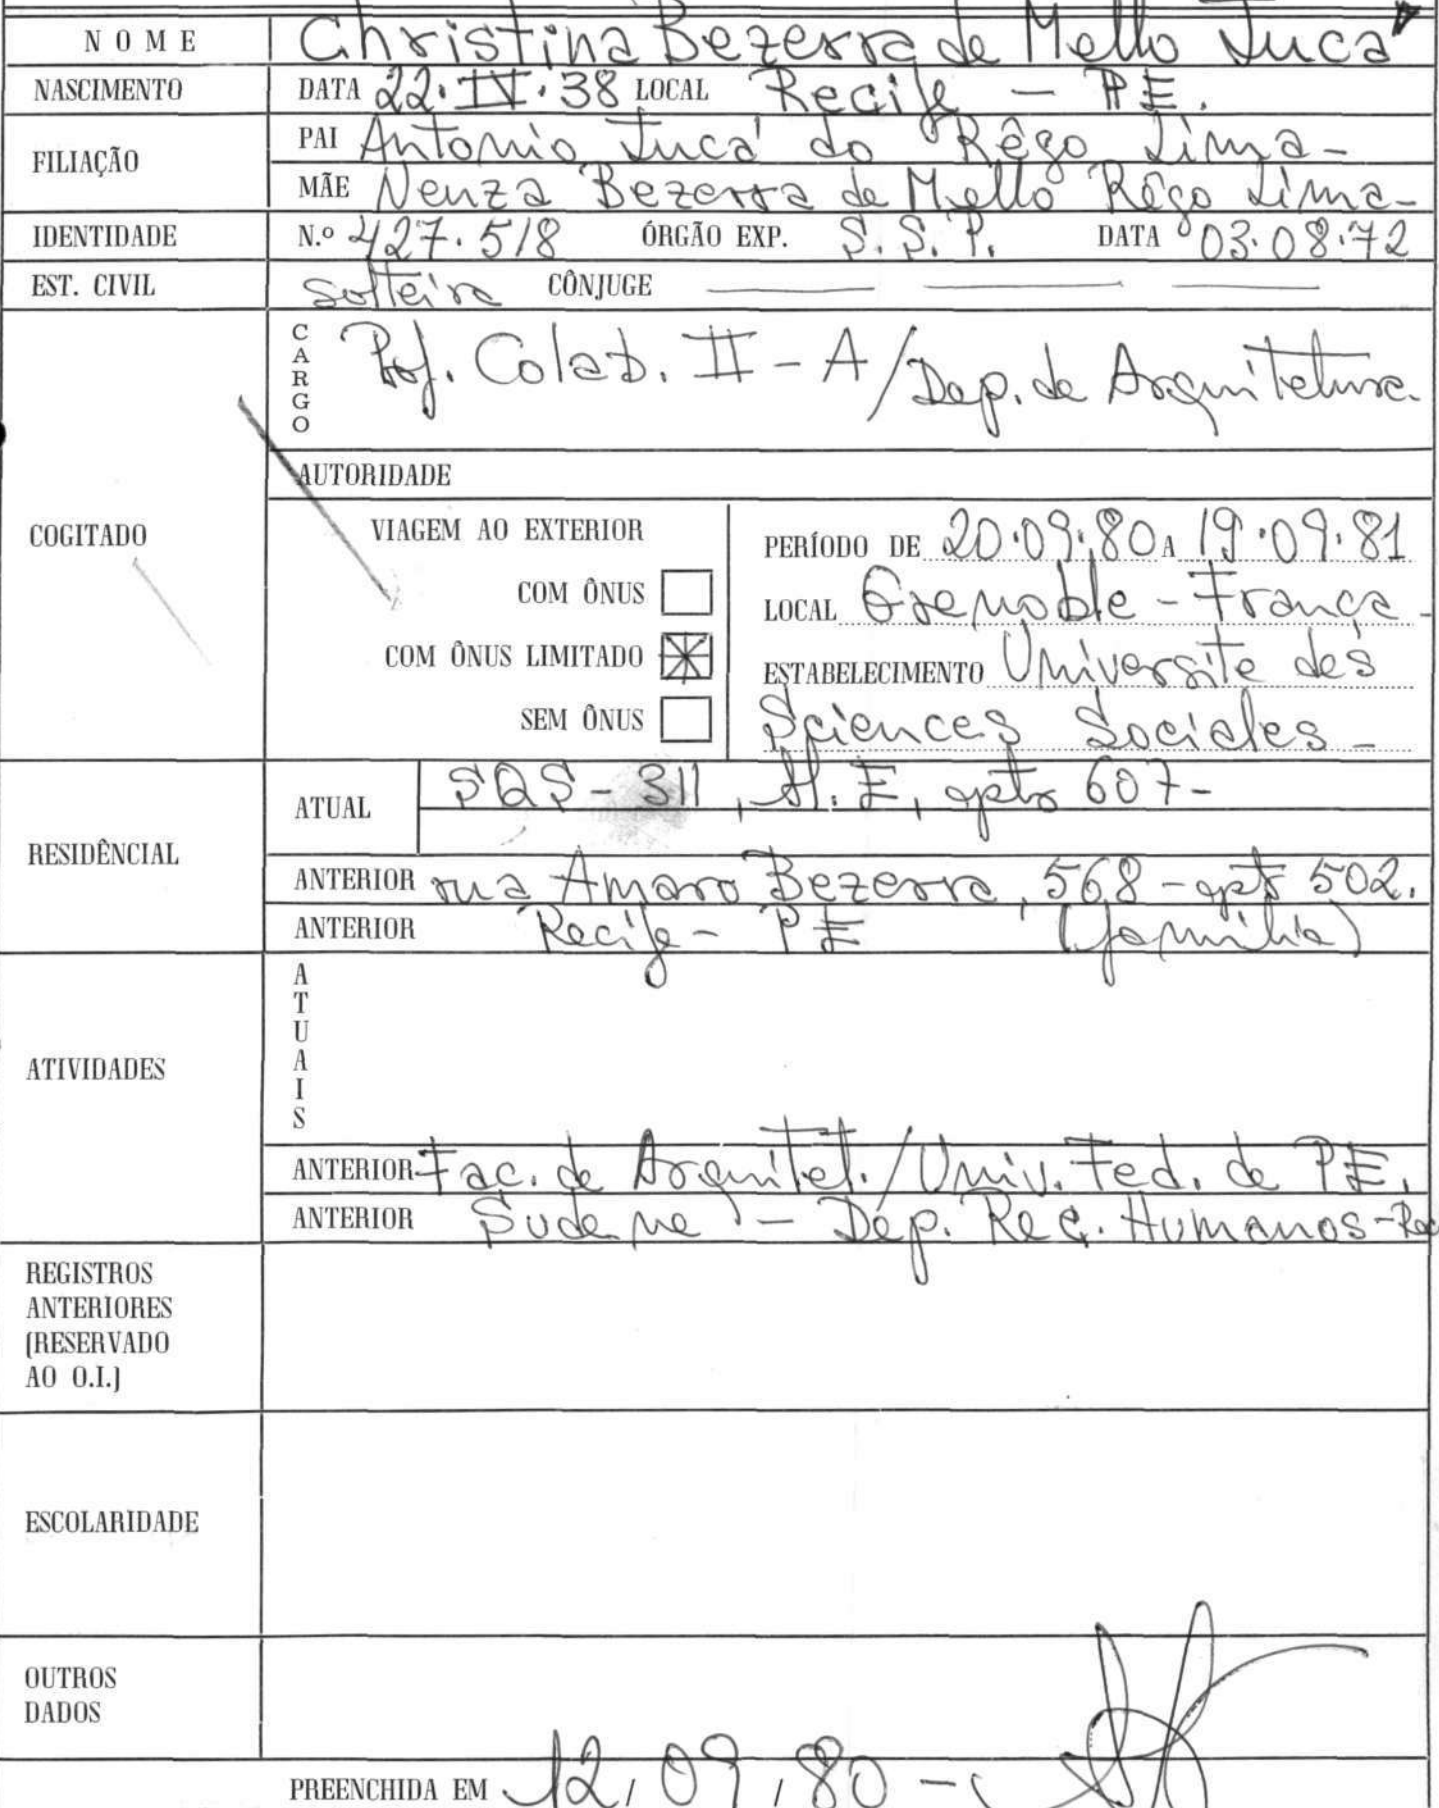 NOME Christina Bezerra de Mello Jucá
NASCIMENTO DATA 22.IV.38 LOCAL Recife - PE.
FILIAÇÃO PAI Antonio Jucá do Rêgo Lima-
MÃE Neuza Bezerra de Mello Rêgo Lima-
IDENTIDADE N.º 427.518 ÓRGÃO EXP. S.S.P. DATA 03.08.72
EST. CIVIL solteira CÔNJUGE
COGITADO
CARGO Prof. Colab. II - A / Dep. de Arquitetura.
AUTORIDADE
VIAGEM AO EXTERIOR
COM ÔNUS
COM ÔNUS LIMITADO
SEM ÔNUS
PERÍODO DE 20.09.80 A 19.09.81
LOCAL Grenoble - França -
ESTABELECIMENTO Universite des
Sciences Sociales -
RESIDÊNCIAL
ATUAL SQS - 311, , apto 607-
ANTERIOR rua Amaro Bezerra, 568 - apto 502.
ANTERIOR Recife - PE (família)
ATIVIDADES
ATUAIS
ANTERIOR Fac. de Arquitet. / Univ. Fed. de PE.
ANTERIOR Sudene - Dep. Rec. Humanos - Rec
REGISTROS
ANTERIORES
(RESERVADO
AO O.I.)
ESCOLARIDADE
OUTROS
DADOS
PREENCHIDA EM 12/09/80 -